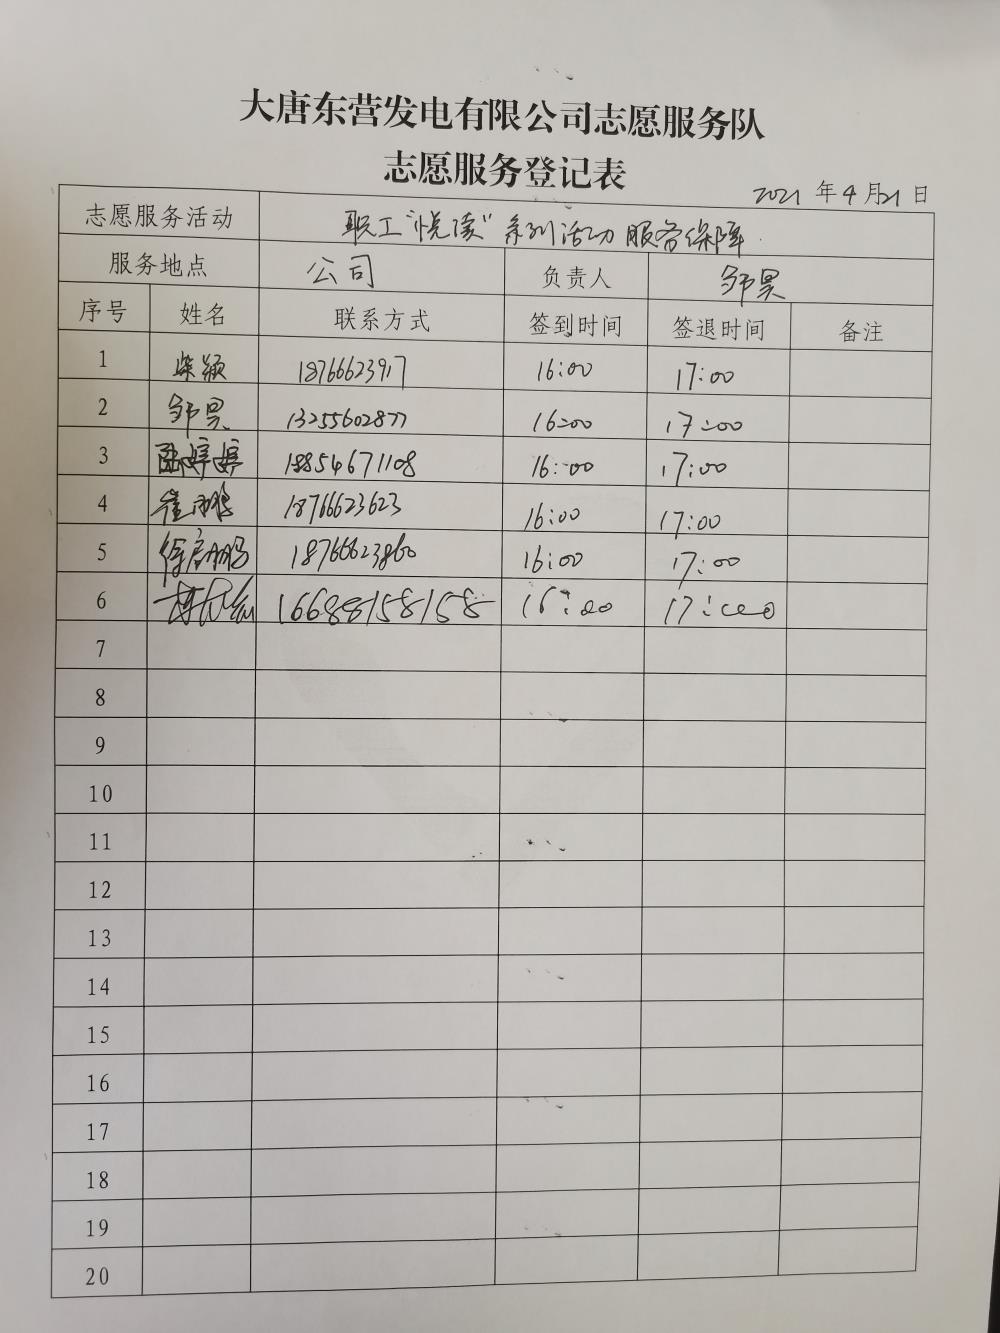 大唐东营发电有限公司志愿服务队
志愿服务登记表
2021 年 4 月 21 日
志愿服务活动 职工“悦读”系列活动服务保障
服务地点 公司 负责人 邹昊
序号 姓名 联系方式 签到时间 签退时间 备注
1 柴颖 18766623917 16:00 17:00
2 邹昊 13255602877 16:00 17:00
3 婷婷 18854671108 16:00 17:00
4 崔鹏 18766623623 16:00 17:00
5 18766623860 16:00 17:00
6 16688158158 16:00 17:00
7
8
9
10
11
12
13
14
15
16
17
18
19
20